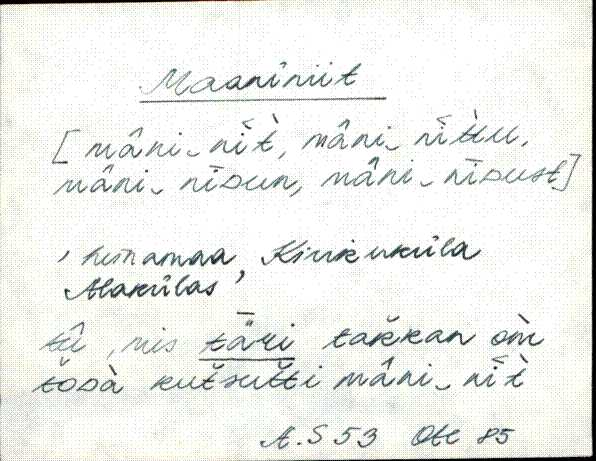 Maaniniit
[mâni‿nīt̀, mâni‿nīt̀tu,
mâni‿nīᴅun, mâni‿nīᴅust]
'heinamaa, Kirikuküla
Alakülas'
tū, mis täri takkan om
tōᴅà kutsutti mâni‿nīt̀
A.S 53 Ote 85